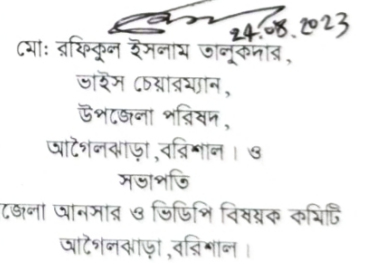 24.08.2023
মো: রফিকুল ইসলাম তালুকদার,
ভাইস চেয়ারম্যান,
উপজেলা পরিষদ,
আগৈলঝাড়া,বরিশাল। ও
সভাপতি
জেলা আনসার ও ভিডিপি বিষয়ক কমিটি
আগৈলঝাড়া,বরিশাল।